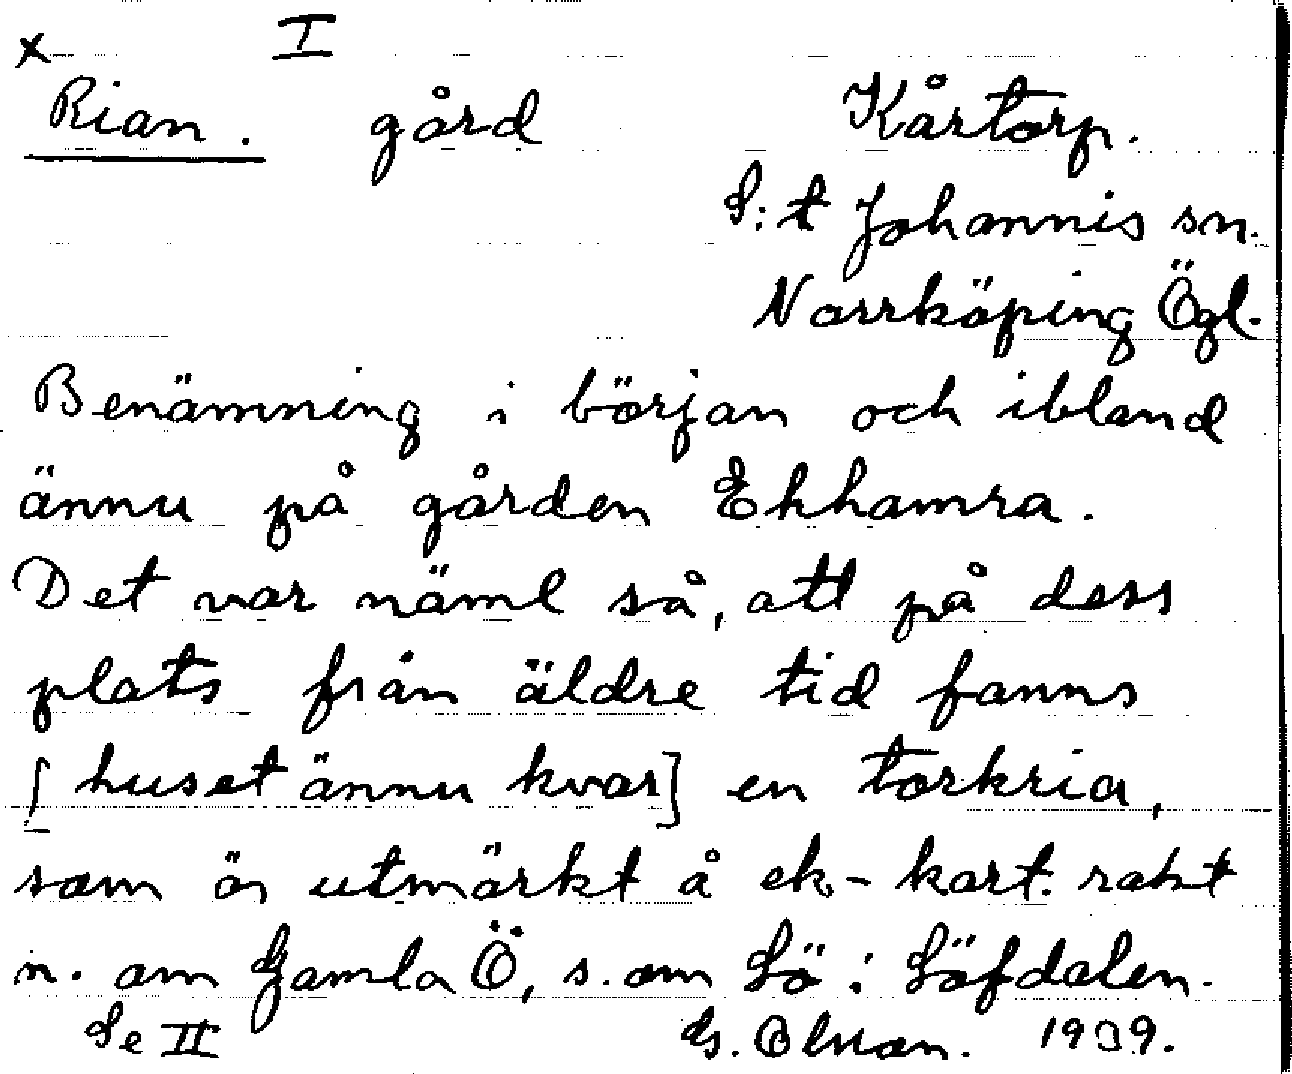 x I
Rian. gård Kårtorp.
S:t Johannis sn.
Norrköping Ögl.
Benämning i början och ibland
ännu på gården Ekhamra.
Det var näml så, att på dess
plats från äldre tid fanns
[huset ännu kvar] en torkria,
som är utmärkt å ek-kart. rakt
n. om Gamla Ö, s. om Lö i Löfdalen.
Se II G. Olsson. 1939.